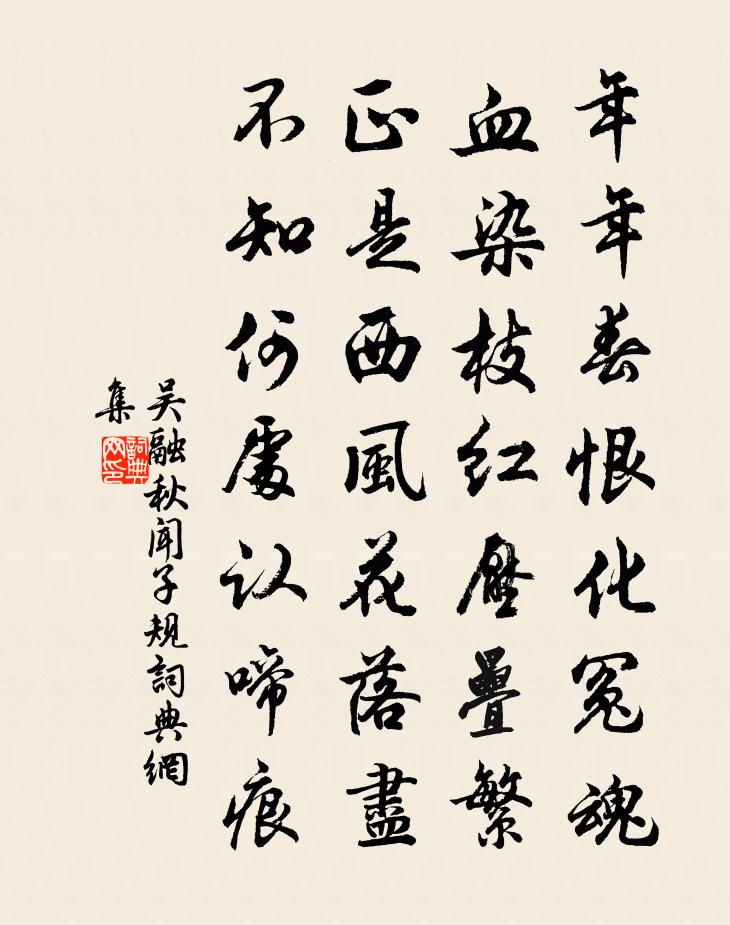 年年春恨化冤魂
血染枝红壓疊繁
正是西風花落盡
不知何處认啼痕
吴融秋聞子規詞典網
集
詞典網印